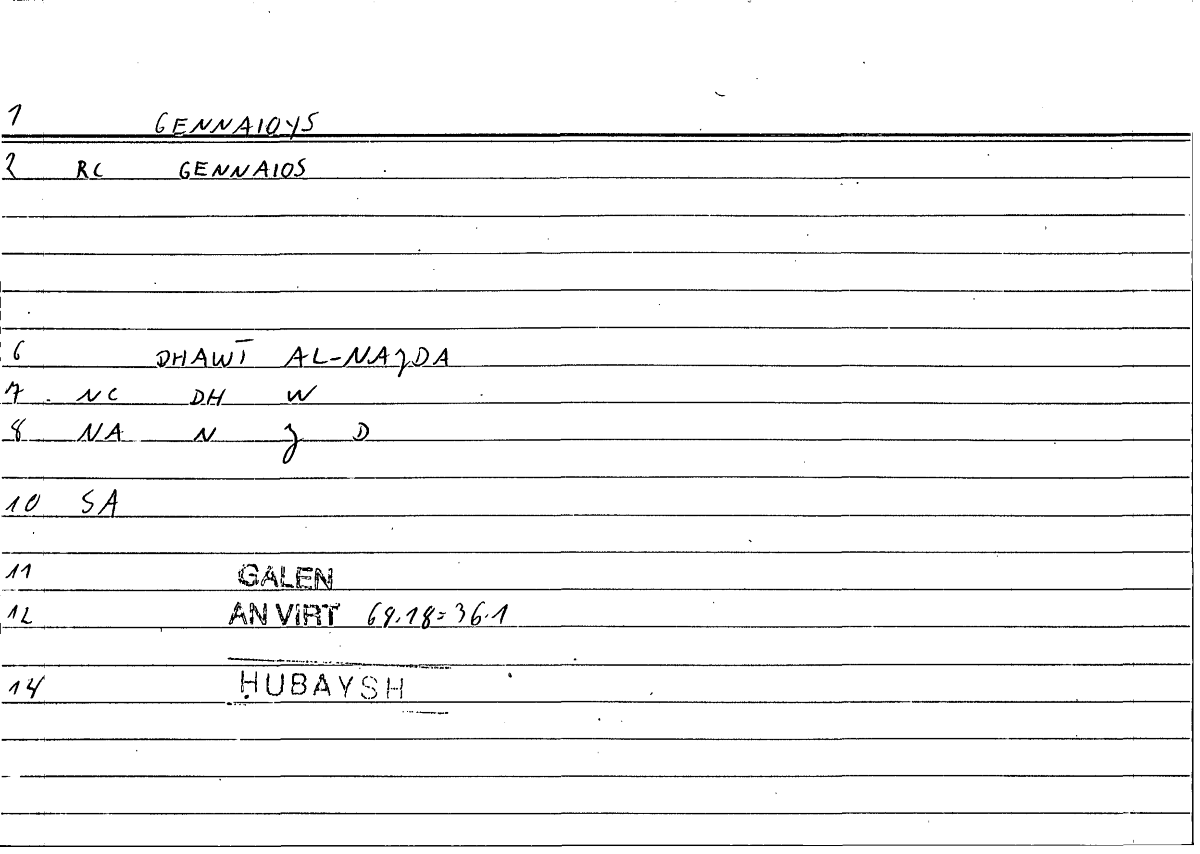 1 GENNAIOYS
2 RC GENNAIOS
6 DHAWĪ AL-NAǧDA
7 NC DH W
8 NA N ǧ D
10 SA
11 GALEN
12 AN VIRT 69.18=36.1
14 ḤUBAYSH